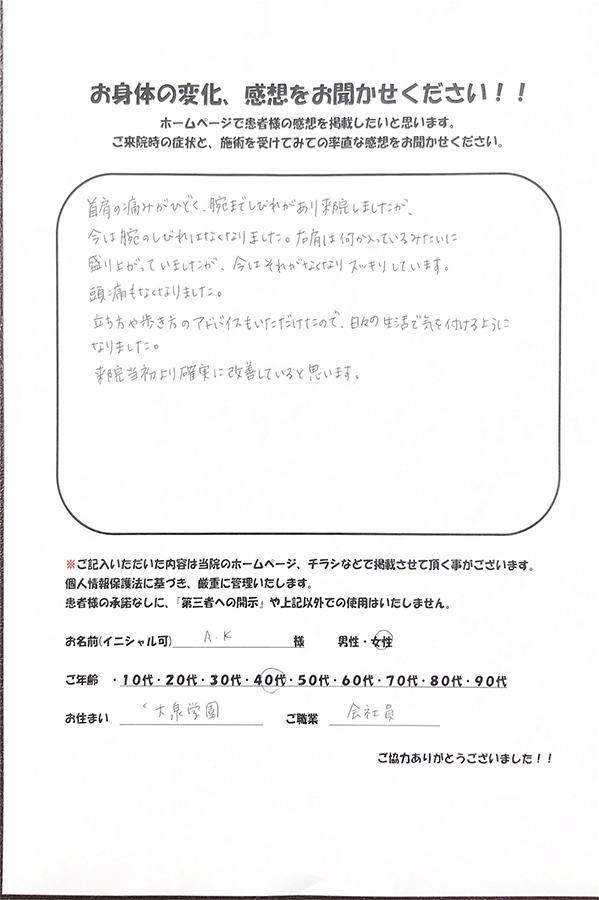 お身体の変化、感想をお聞かせください！！
ホームページで患者様の感想を掲載したいと思います。
ご来院時の症状と、施術を受けてみての率直な感想をお聞かせください。
首肩の痛みがひどく、腕までしびれがあり来院しましたが、
今は腕のしびれはなくなりました。右肩は何か入っているみたいに
盛り上がっていましたが、今はそれがなくなりスッキリしています。
頭痛もなくなりました。
立ち方や歩き方のアドバイスもいただけたので、日々の生活で気を付けるように
なりました。
来院当初より確実に改善していると思います。
※ご記入いただいた内容は当院のホームページ、チラシなどで掲載させて頂く事がございます。
個人情報保護法に基づき、厳重に管理いたします。
患者様の承諾なしに、『第三者への開示』や上記以外での使用はいたしません。
お名前(イニシャル可) A.K 様 男性・女性
ご年齢 ・10代・20代・30代・40代・50代・60代・70代・80代・90代
お住まい 大泉学園 ご職業 会社員
ご協力ありがとうございました！！